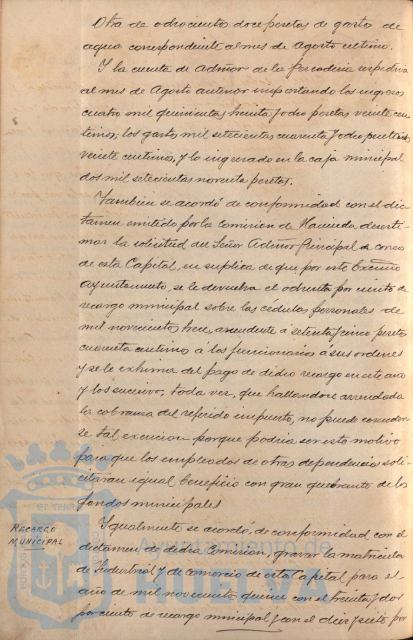 Otra de ochocientas doce pesetas de gasto de
agua correspondiente al mes de Agosto último.
Y la cuenta de Admor de la Pescadería respectiva
al mes de Agosto anterior importando los ingresos
cuatro mil quinientas treinta y ocho pesetas veinte cen-
timos; los gastos mil setecientas cuarenta y ocho pesetas
veinte centimos, y lo ingresado en la caja municipal
dos mil setecientas noventa pesetas.
Tambien se acordó de conformidad con el dic-
tamen emitido por la Comision de Hacienda, desesti-
mar la solicitud del Señor Admor Principal de Correos
de esta Capital, en suplica de que por este Excmo
Ayuntamiento, se le devuelva el ochenta por ciento de
recargo municipal sobre las cédulas personales de
mil novecientos trece, ascendente á setenta y cinco pesetas
cuarenta centimos á los funcionarios á sus ordenes
y se le exhima del pago de dicho recargo en este año
y los sucesivos; toda vez, que hallandose arrendada
la cobranza del referido impuesto, no puede conceder-
se tal exencion porque podria ser esto motivo
para que los empleados de otras dependencias soli-
citaran igual beneficio con gran quebranto de los
fondos municipales
RECARGO
MUNICIPAL
Igualmente se acordó, de conformidad con el
dictamen de dicha Comision, gravar la matricula
de Industrial y de comercio de esta Capital para el
año de mil novecientos quince con el treinta y dos
por ciento de recargo municipal y con el diez y siete por